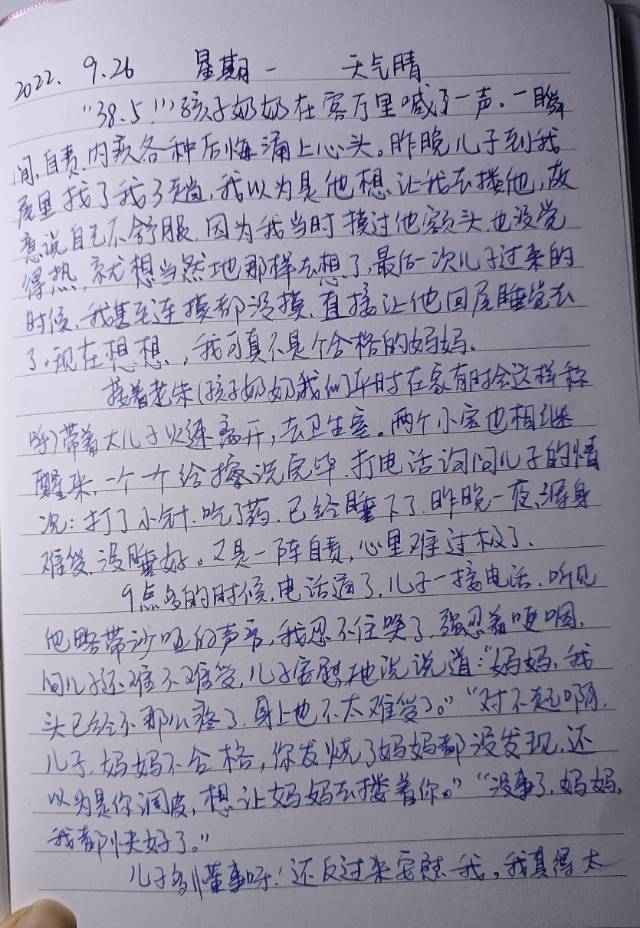 2022. 9.26 星期一 天气晴
"38.5!!!孩子奶奶在客厅里喊了一声。一瞬
间,自责,内疚各种后悔涌上心头。昨晚儿子到我
屋里找了我3趟,我以为是他想让我去搂他,故
意说自己不舒服,因为我当时摸过他额头,也没觉
得热,就想当然地那样去想了,最后一次儿子过来的
时候,我甚至连摸都没摸,直接让他回屋睡觉去
了。现在想想,我可真不是个合格的妈妈。
接着老朱(孩子奶奶我们平时在家有时会这样称
呼)带着大儿子火速离开,去卫生室。两个小宝也相继
醒来,一个个给擦洗完毕,打电话询问儿子的情
况:打了小针,吃了药,已经睡下了,昨晚一夜,浑身
难受,没睡好。又是一阵自责,心里难过极了。
9点多的时候,电话通了,儿子一接电话,听见
他略带沙哑的声音,我忍不住哭了,强忍着哽咽,
问儿子还难不难受,儿子安慰地说说道:"妈妈,我
头已经不那么疼了,身上也不太难受了。""对不起啊,
儿子,妈妈不合格,你发烧了妈妈都没发现,还
以为是你调皮,想让妈妈去搂着你。""没事了,妈妈,
我都快好了。"
儿子多懂事呀!还反过来安慰我,我真得太